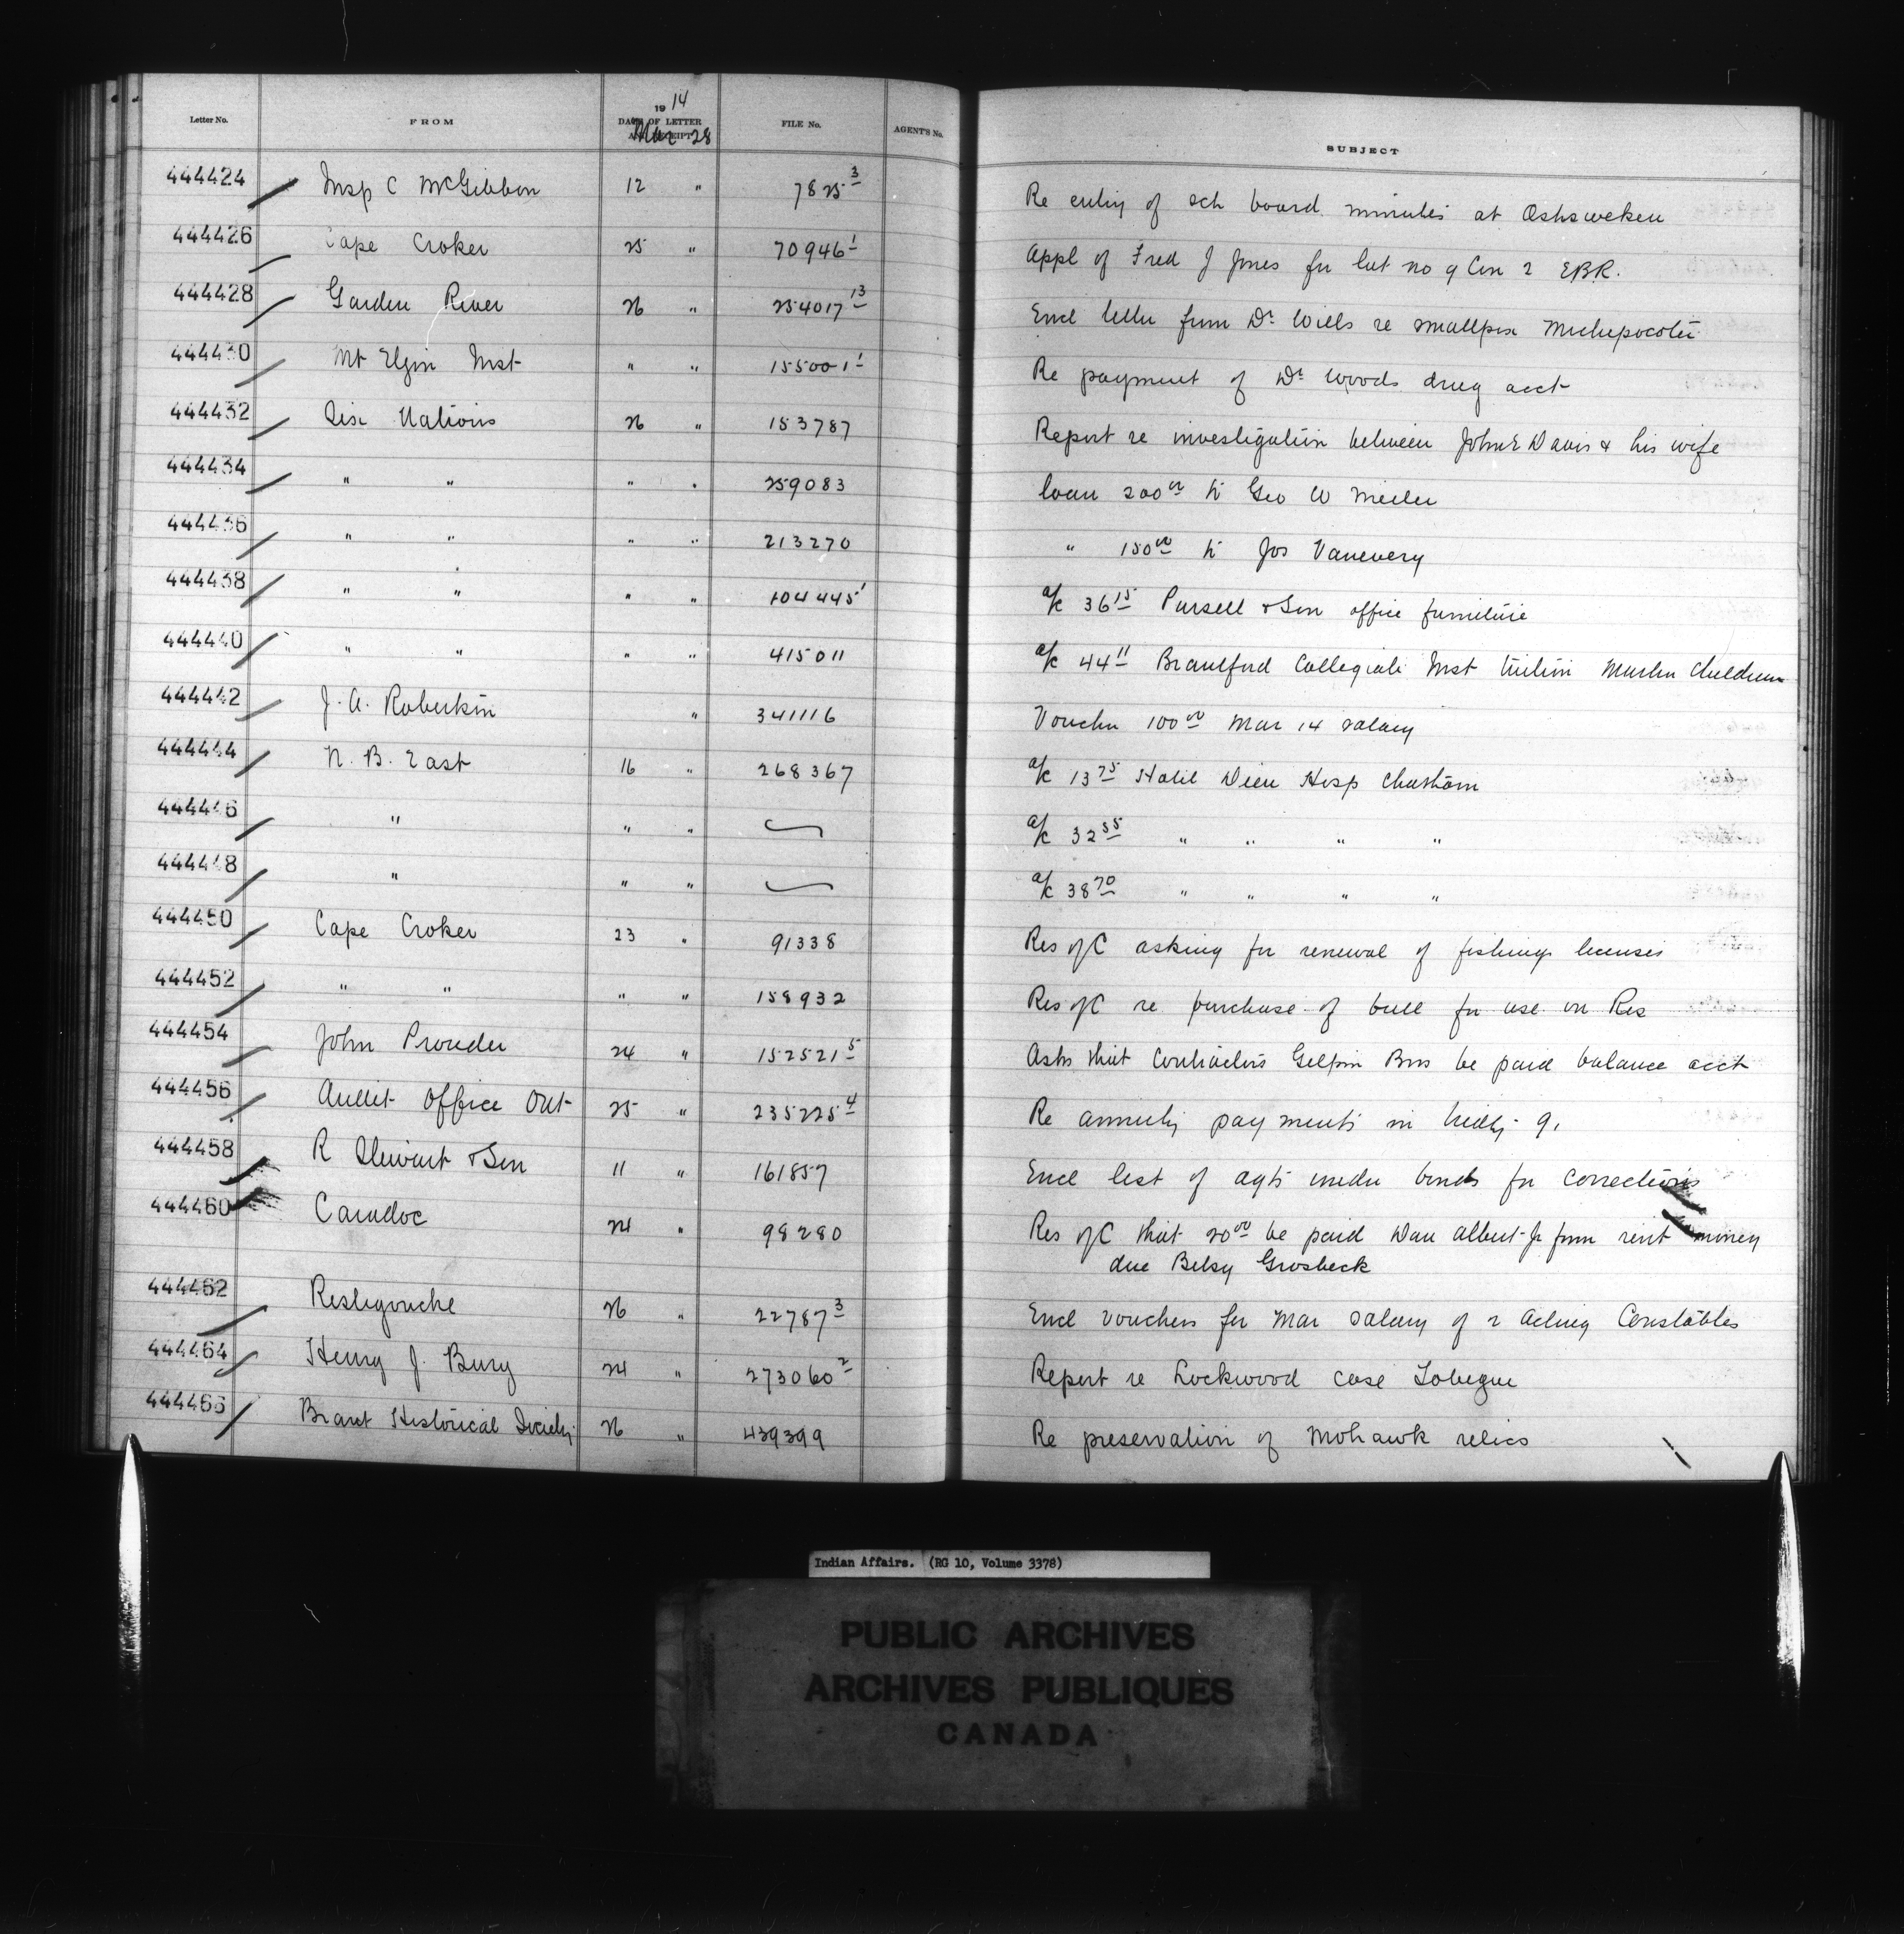 Letter No. FROM 1914 DATE OF LETTER AND RECEIPT Mar 28 FILE No. AGENT'S No. SUBJECT
444424 Insp C McGibbon 12 " 7825 3 Re entry of sch board minutes at Oshsweken
444426 Cape Croker 25 " 70946 1 Appl of Fred J Jones for lot no 9 Con 2 EBR.
444428 Garden River 26 " 254017 13 Encl letter from Dr Wills re smallpox Michipocoten
444430 Mt Elgin Inst " " 155001 1 Re payment of Dr Woods drug acct
444432 Six Nations 26 " 153787 Report re investigation between John E Davis & his wife
444434 " " " " 259083 loan 200 00 to Geo W Miller
444436 " " " " 213270 " 150 00 to Jos Vanevery
444438 " " " " 104445 1 a/c 36 15 Pursell & Son office furniture
444440 " " " " 415011 a/c 44 11 Brantford Collegiate Inst tuition Martin Children
444442 J. A. Robertson " 341116 Voucher 100 00 Mar 14 salary
444444 N. B. East 16 " 268367 a/c 13 75 Hotel Dieu Hosp Chatham
444446 " " " a/c 32 55 " " " "
444448 " " " a/c 38 70 " " " "
444450 Cape Croker 23 " 91338 Res of C asking for renewal of fishing licenses
444452 " " " " 158932 Res of C re purchase of bull for use on Res
444454 John Prouder 24 " 152521 5 Asks that Contractors Gilpin Bros be paid balance acct
444456 Audit Office Ont 25 " 235225 4 Re annuity payments in treaty 9.
444458 R Stewart & Son 11 " 161857 Encl list of agts under bonds for corrections
444460 Caradoc 24 " 98280 Res of C that 20 00 be paid Dan Albert Jr from rent money
due Betsy Grosbeck
444462 Restigouche 26 " 22787 3 Encl vouchers for Mar salary of 2 Acting Constables
444464 Henry J. Bury 24 " 273060 2 Report re Lockwood case Tobique
444466 Brant Historical Society 26 " 439399 Re preservation of Mohawk relics
Indian Affairs. (RG 10, Volume 3378)
PUBLIC ARCHIVES
ARCHIVES PUBLIQUES
CANADA